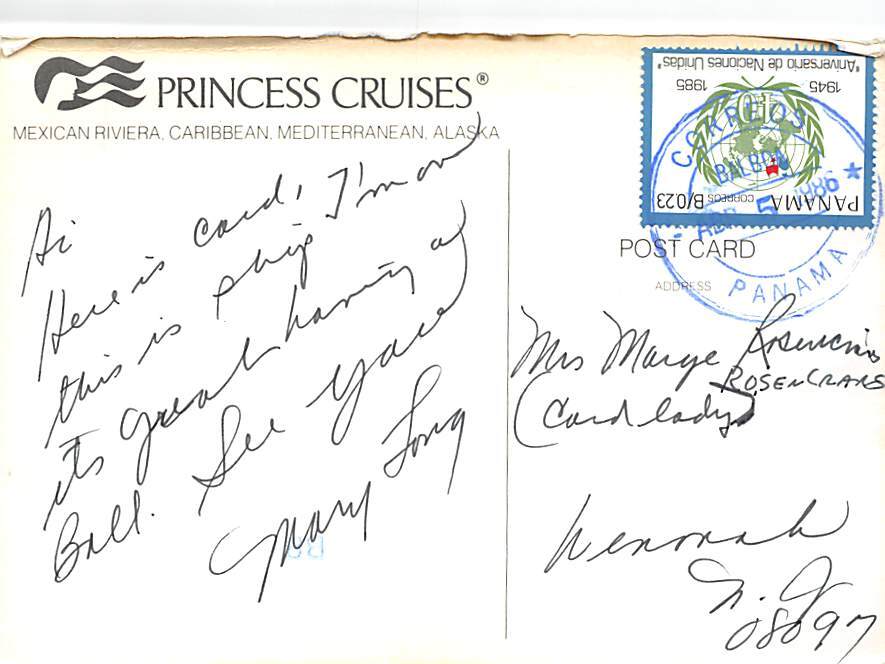 PRINCESS CRUISES®
MEXICAN RIVIERA, CARIBBEAN, MEDITERRANEAN, ALASKA
Hi
Here is card,
this is ship I'm on
its great having a
Ball. See you
Mary Long
"Aniversario de Naciones Unidas"
1945 1985
40
PANAMA CORREOS B/0.23
CORREOS
BALBOA
ABR 5 1986
PANAMA
POST CARD
ADDRESS
Mrs Marge
ROSENCRANS
(Card lady)
Wenonah
N.J
08097